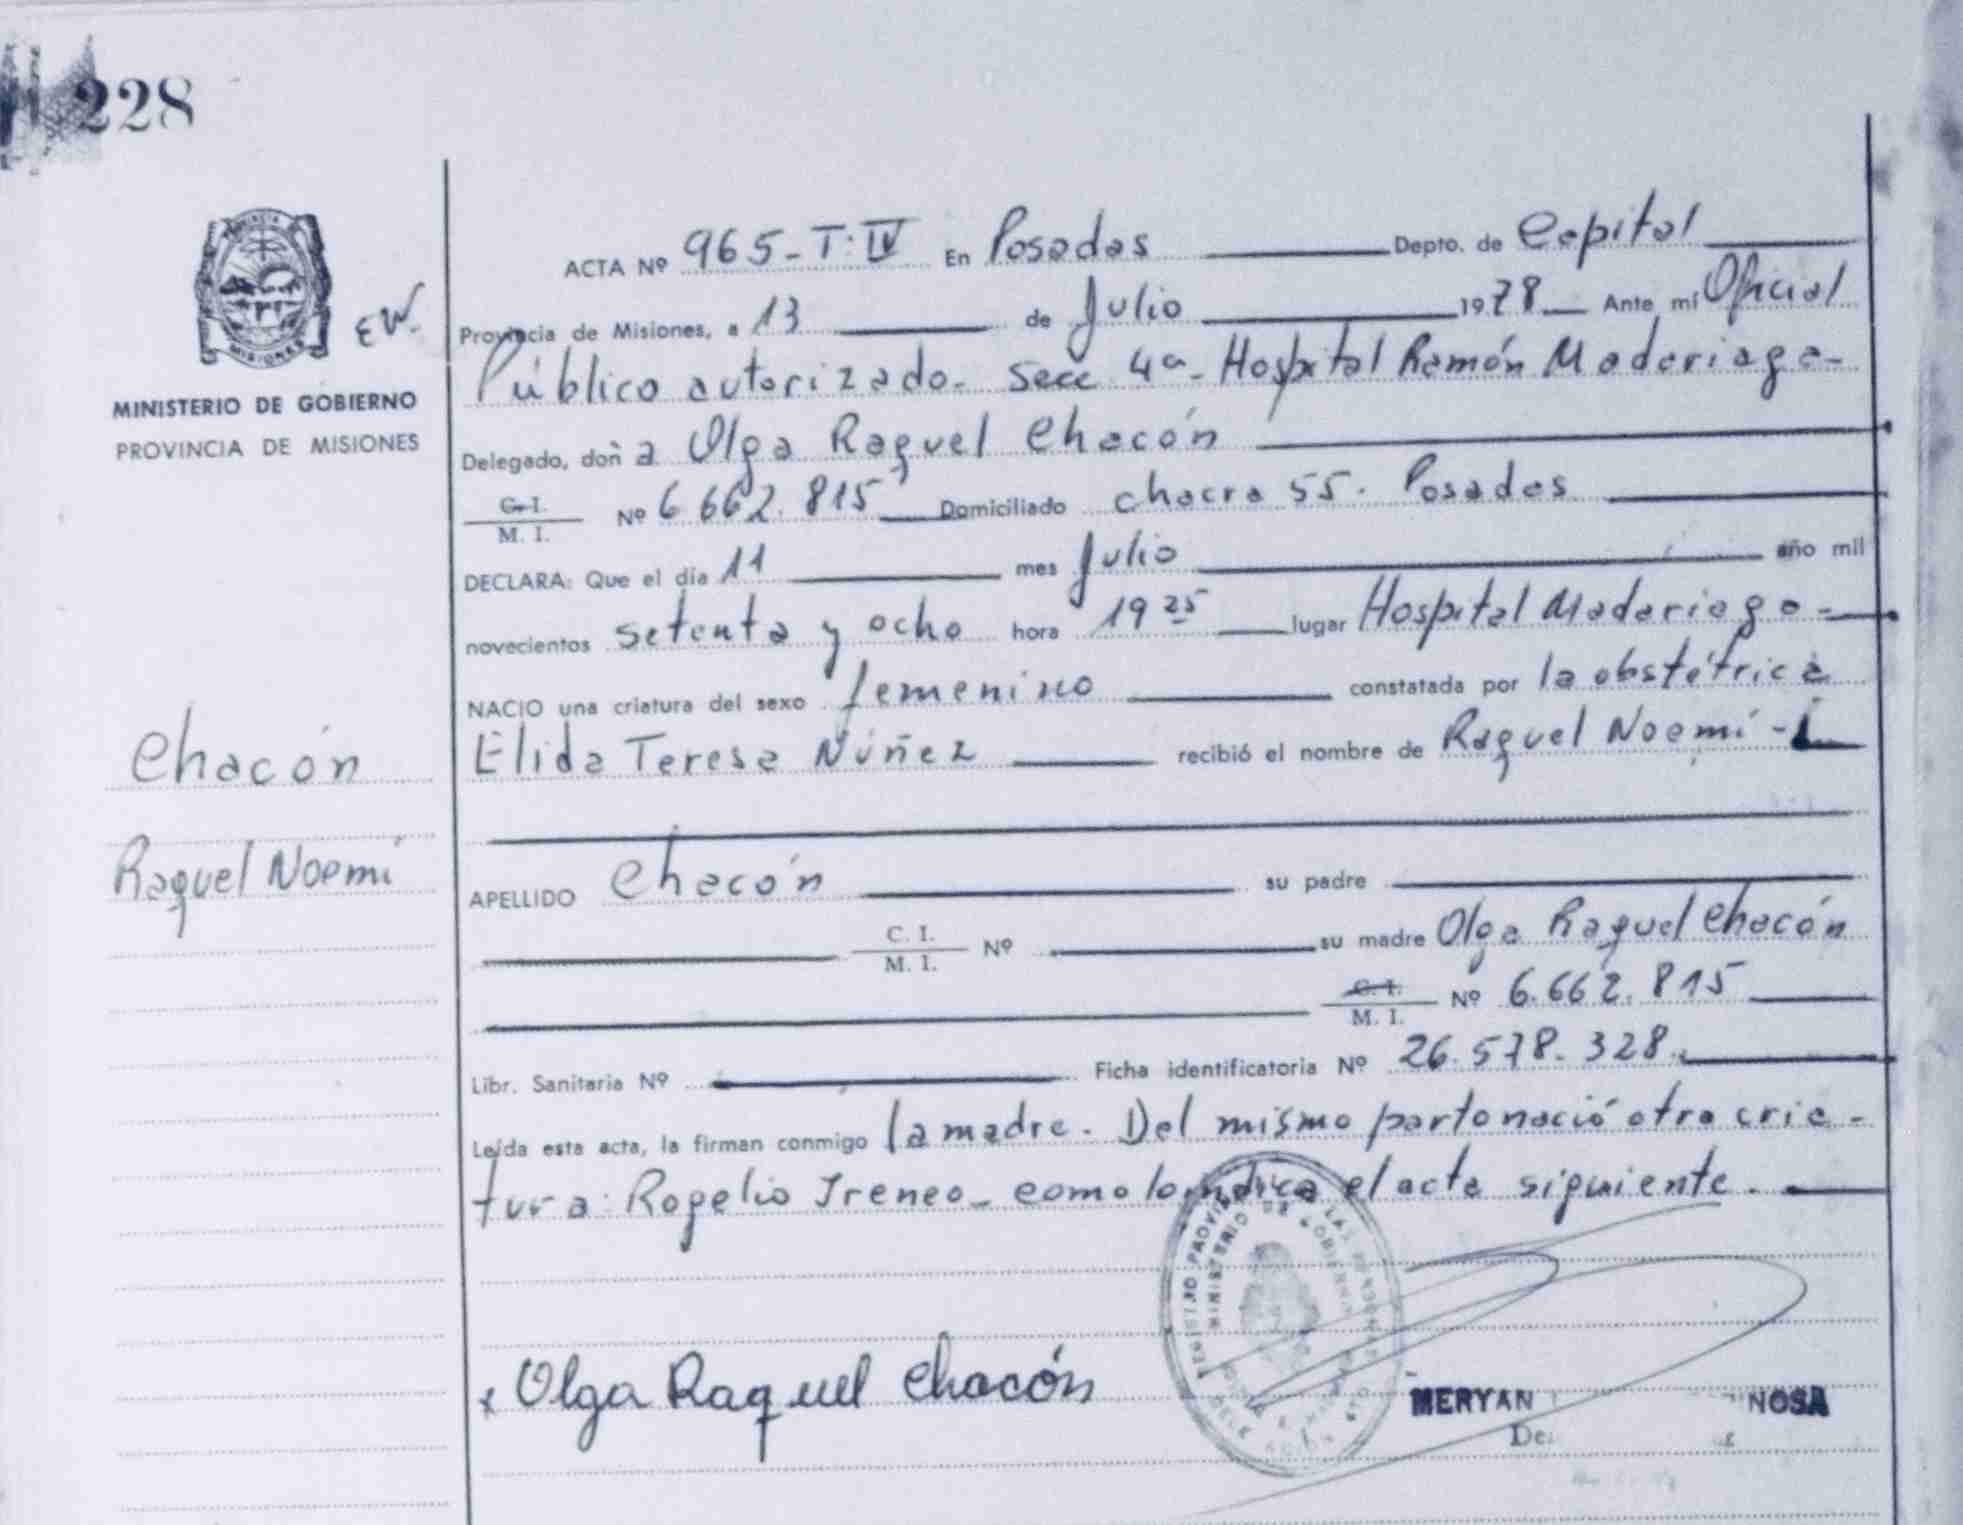 228
ACTA Nº 965-T:IV En Posadas Depto. de Capital
Provincia de Misiones, a 13 de Julio 1978 Ante mí Oficial
Público autorizado. Secc 4a- Hospital Ramón Madariaga-
MINISTERIO DE GOBIERNO
PROVINCIA DE MISIONES
MISIONES
EW.
Delegado, doña Olga Raquel Chacón
C. I. M. I. Nº 6.662.815 Domiciliado chacra 55. Posadas
DECLARA: Que el día 11 mes Julio año mil
novecientos setenta y ocho hora 19 25 lugar Hospital Madariaga-
NACIO una criatura del sexo femenino constatada por la obstétrica
Elida Teresa Núñez recibió el nombre de Raquel Noemí-
Chacón
Raquel Noemí
APELLIDO Chacón su padre
C. I. M. I. Nº su madre Olga Raquel Chacón
C. I. M. I. Nº 6.662.815
Libr. Sanitaria Nº Ficha identificatoria Nº 26.578.328.
Leída esta acta, la firman conmigo la madre. Del mismo parto nació otra cria-
tura: Rogelio Ireneo- como lo indica el acta siguiente.
Olga Raquel Chacón
MINISTERIO DE GOBIERNO
MERYAN NOSA